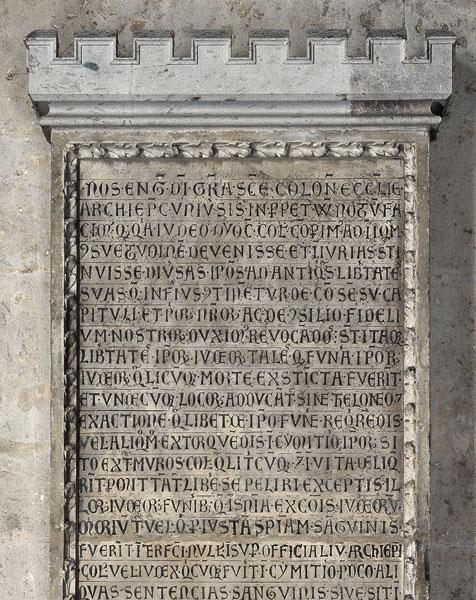 NOS ENG DI GRA SCE COLON ECCLIE
ARCHIEPC UNIVSIS INPPETUU NOTU FA
QQA IUDEO
DEVENISSE ET IIURIAS STI
NVISSE DIVSAS IPOS AD ANTIQS LIBTATE
SUAS Q INFIUS 9TINETUR DE COSESU CA
PITULI ET POR NROR AC DE 9SILIO FIDELI
UM NOSTROR DUXIM REVOCADO STITA
LIBTATE IPOR IUDEOR TALE Q FUNA IPOR
IUDEOR QLICUQ MORTE EXSTICTA FUERIT
ET UNDECUQ LOCOR ADDUCAT SINE TELONEO 7
EXACTIONE QLIBET DE IPO FUNE REQREDIS
VEL ALIQM EXTORQUEDIS I CYMITIO IPOR SI
TO EXT MUROS COL QLITCUQ 7 I VITA DELIQ
RIT PONI TTAT LIBE SEPELIRI EXCEPTIS IL
LOR IUDEOR FUNIB Q I SNIA EXCOIS IUDEORU
MORIUT VEL Q P IUSTA SPIAM SAGUINIS
FUERIT ITERFCI NULLIS UP OFFICIALIU ARCHIEPI
COL VEL IUDEX QCUQ FUITI CYMITIO PDCO ALI
QUAS SENTENCIAS SANGUINIS SIVE SITI